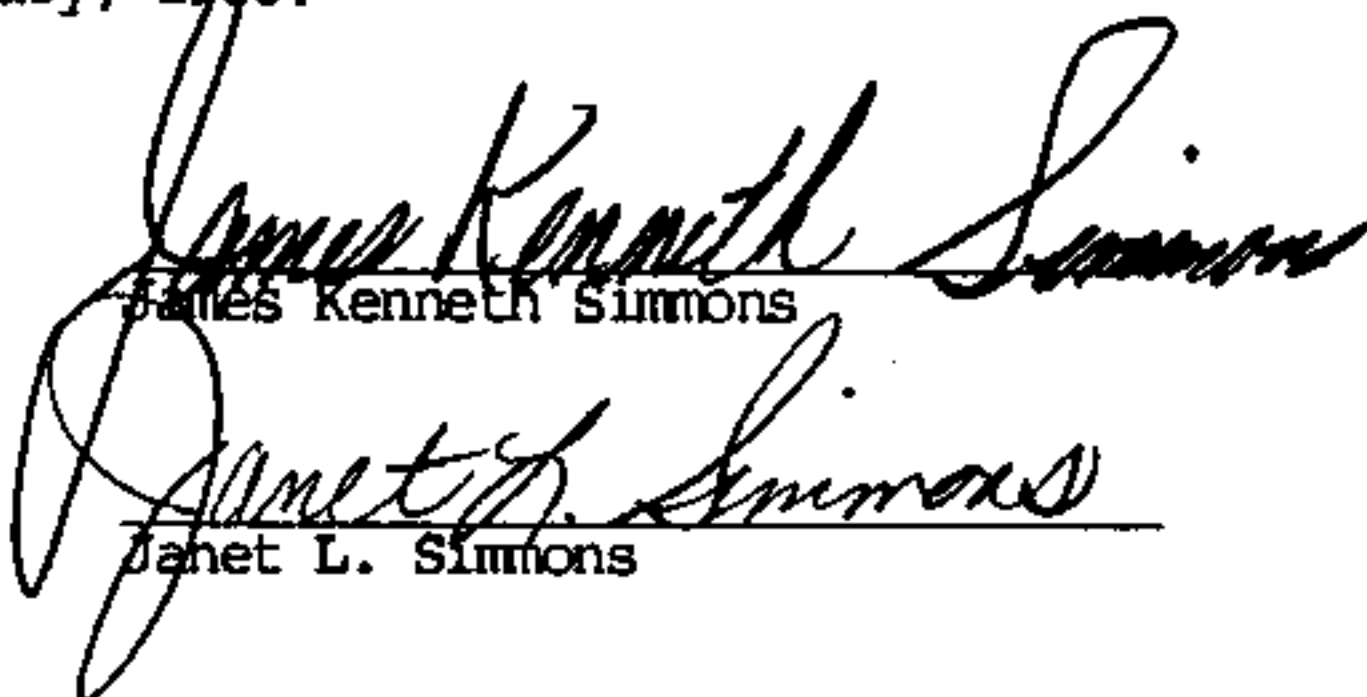 James Kenneth Simmons
James Kenneth Simmons
Janet L. Simmons
Janet L. Simmons